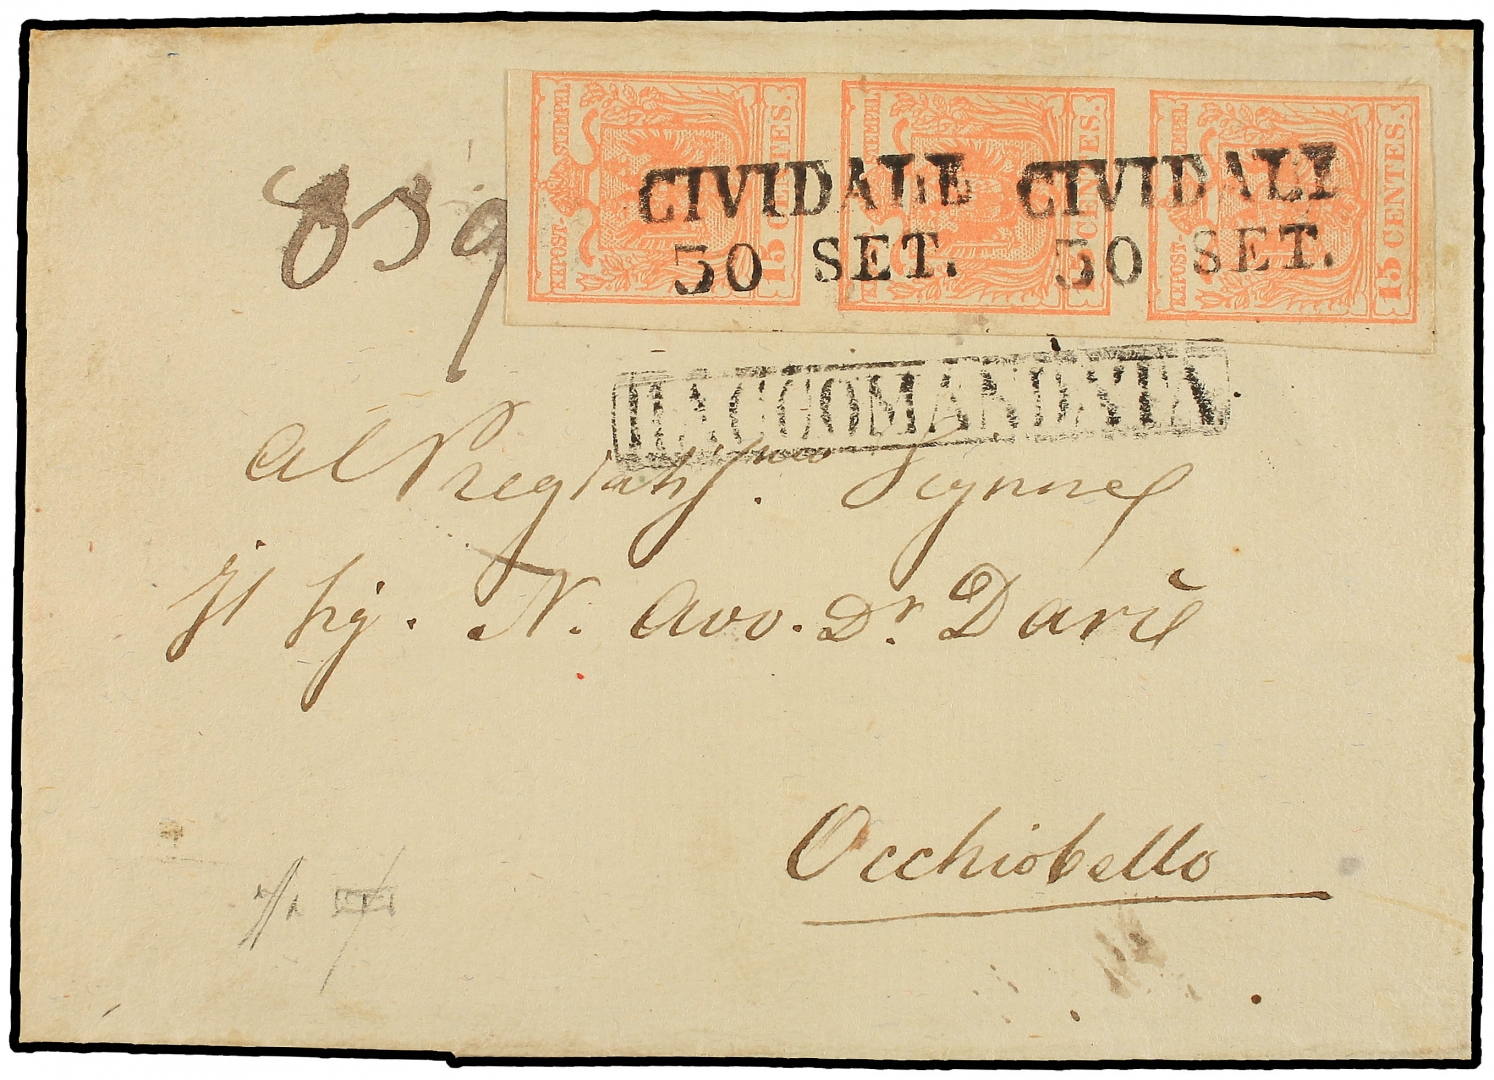 KKPOST-STEMPEL 15 CENTES. KKPOST-STEMPEL 15 CENTES. KKPOST-STEMPEL 15 CENTES.
CIVIDALE CIVIDALE
30 SET. 30 SET.
859
RACCOMANDATA
Al Pregiatiss.mo Signore
Il Sig. N. Avv. Dr. Davì
Occhiobello